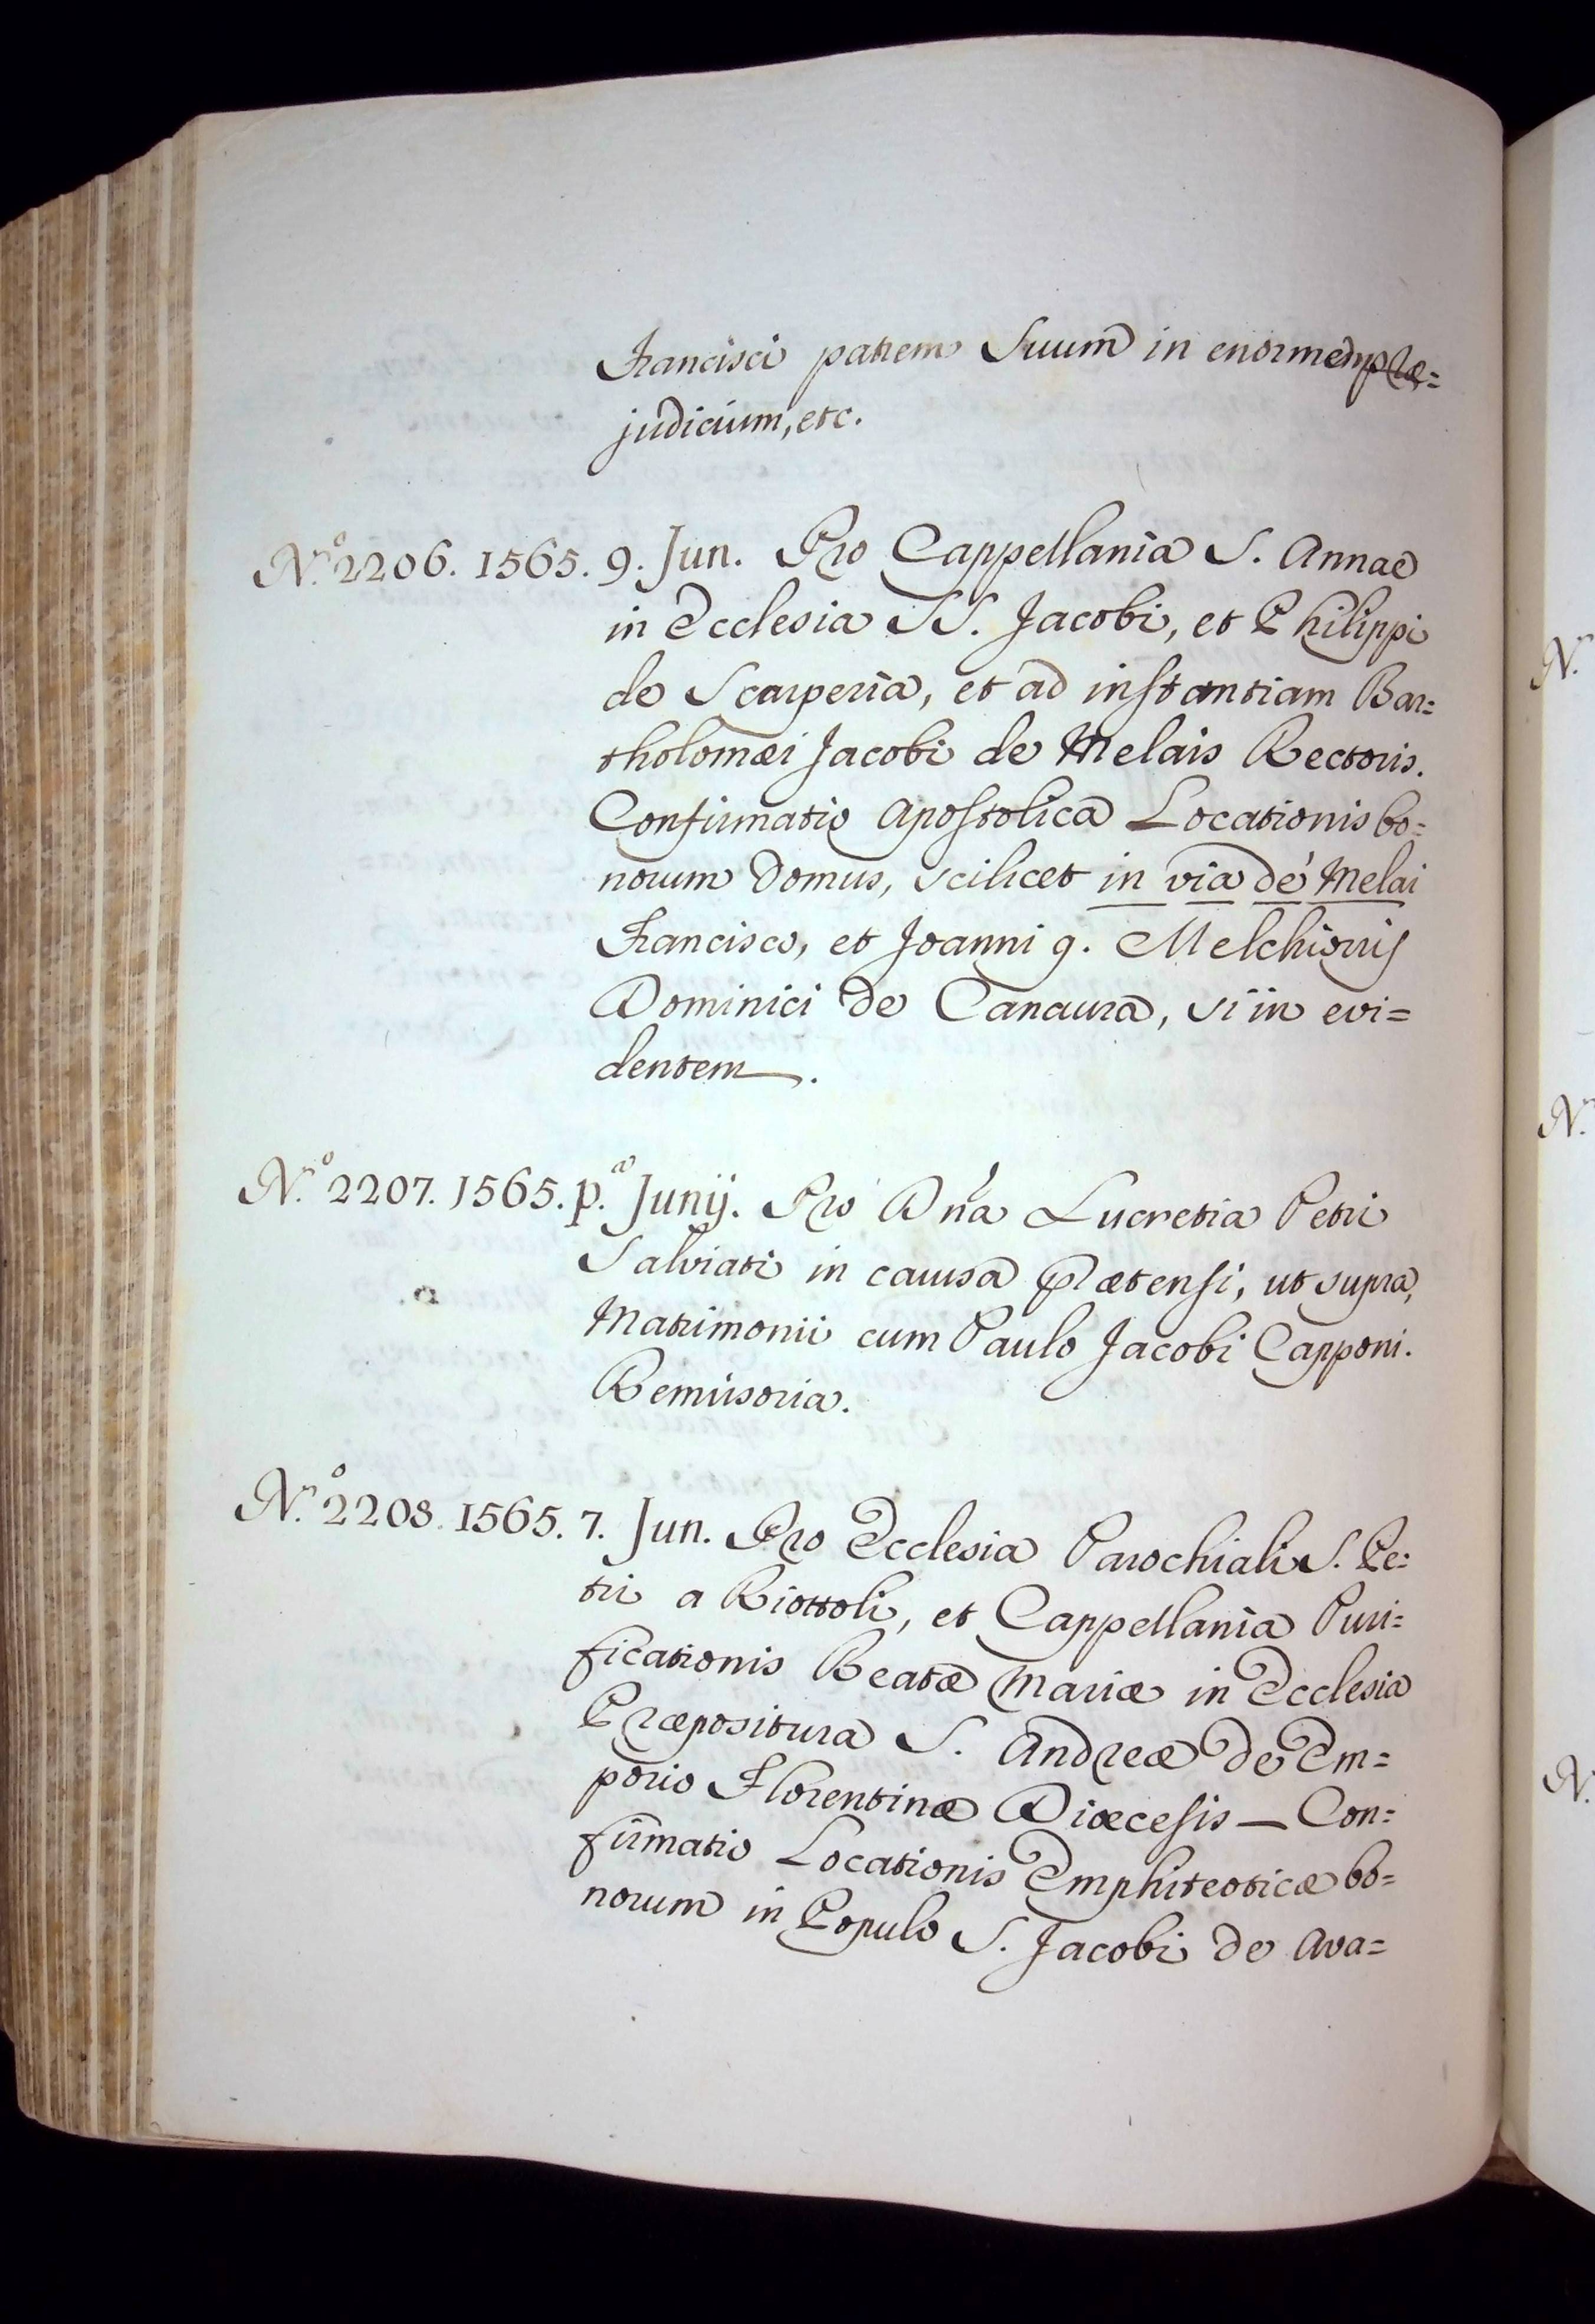 Francisci patrem Suum in enormem præ=
judicium, etc.
N.º 2206. 1565. 9. Jun. Pro Cappellania S. Annae
in Ecclesia SS. Jacobi, et Philippi
de Scarperia, et ad instantiam Bar=
tholomæi Jacobi de Melais Rectoris.
Confirmatio Apostolica Locationis bo=
norum Domus, scilicet in via de' Melai
Francisco, et Joanni q. Melchioris
Dominici de Canaura, si in evi=
dentem.
N.º 2207. 1565. p.ª Junij. Pro Dña Lucretia Petri
Salviati in causa prætensi, ut supra,
Matrimonii cum Paulo Jacobi Capponi.
Remissoria.
N.º 2208. 1565. 7. Jun. Pro Ecclesia Parochiali S. Pe=
tri a Riottoli, et Cappellania Puri=
ficationis Beatæ Mariæ in Ecclesia
Præpositura S. Andreæ de Em=
porio Florentinæ Diœcesis — Con=
firmatio Locationis Emphiteoticæ bo=
norum in Populo S. Jacobi de Ava=
N.
N.
N.